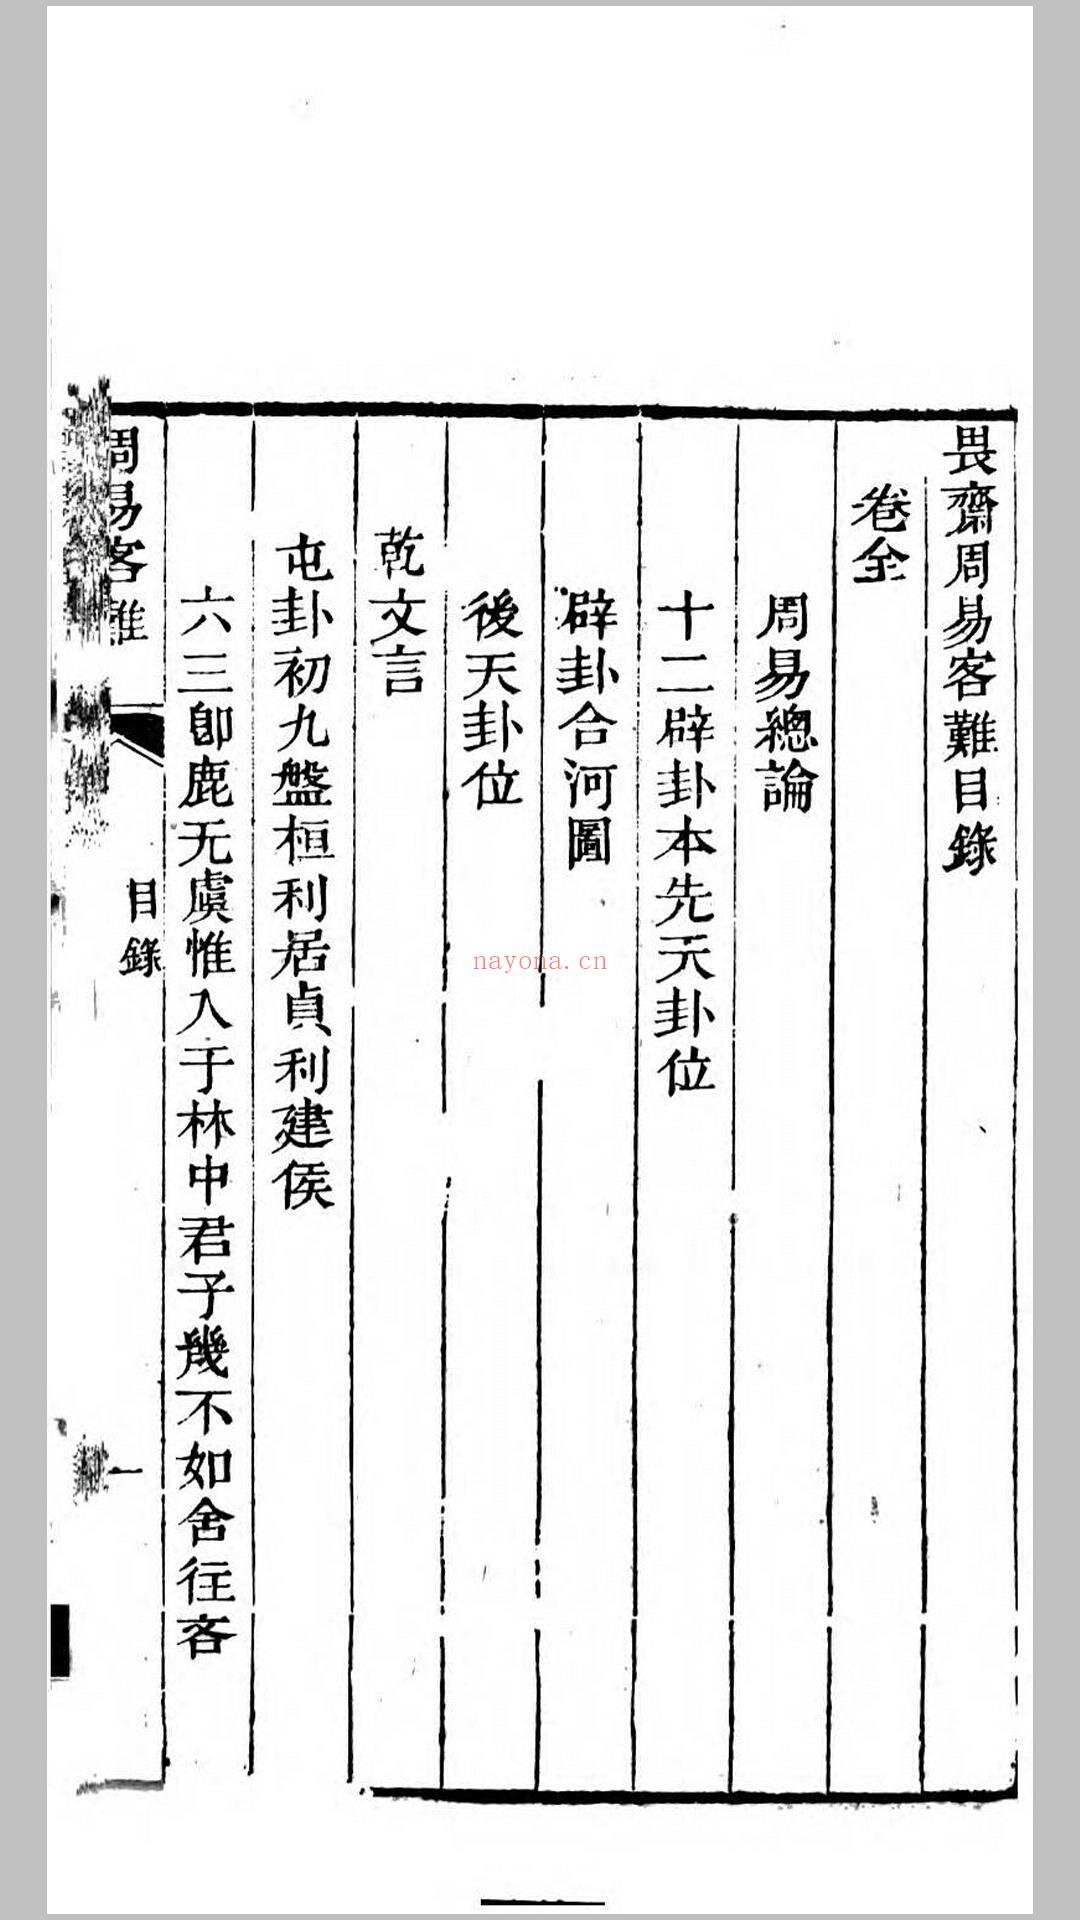 畏齋周易客難目錄
卷全
周易總論
十二辟卦本先天卦位
辟卦合河圖
後天卦位
乾文言
屯卦初九盤桓利居貞利建侯
六三卽鹿无虞惟入于林中君子幾不如舍往吝
周易客難
目錄
一
nayona.cn